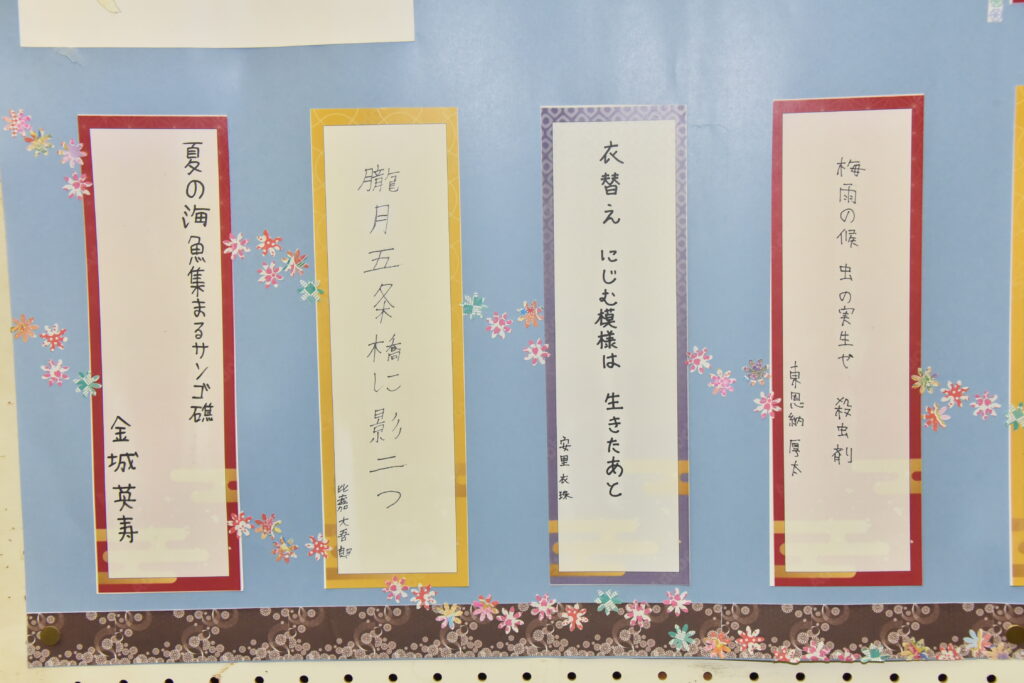 梅雨の候 虫の実生ぜ 殺虫剤
東恩納 厚太
衣替え にじむ模様は 生きたあと
安里 衣珠
朧月五条橋に影二つ
比嘉 大吾郎
夏の海魚集まるサンゴ礁
金城 英寿